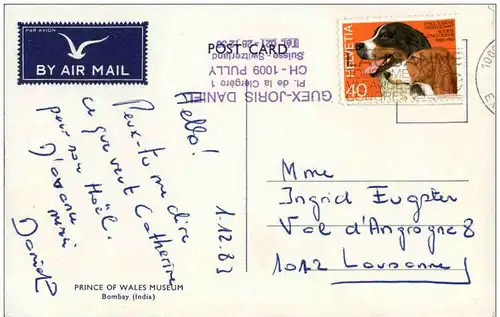 PAR AVION
BY AIR MAIL
POST CARD
GUEX-JORIS DANIEL
Pl. de la Clergère 1
CH - 1009 PULLY
Suisse - Switzerland
HELVETIA
40
Hello!
Peux-tu me dire
ce que veut Catherine
pour son Noël.
D'avance
merci
Daniel
1.12.83
Mme
Ingrid Eugster
Val d'Angrogne 8
1012 Lausanne
PRINCE OF WALES MUSEUM
Bombay (India)